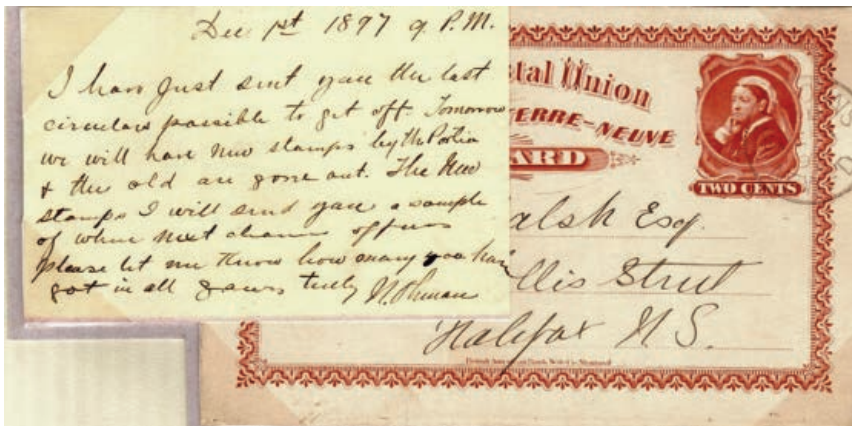 Dec 1st 1897 9 P.M.
I have just sent you the last
circulars possible to get off. Tomorrow
we will have new stamps by the Portia
& the old are gone out. The New
stamps I will send you a sample
of when next chance offers
please let me know how many you have
got in all yours truly N. Ohman
tal Union
ERRE-NEUVE
ARD
TWO CENTS
alsh Esq.
llis Street
Halifax N.S.